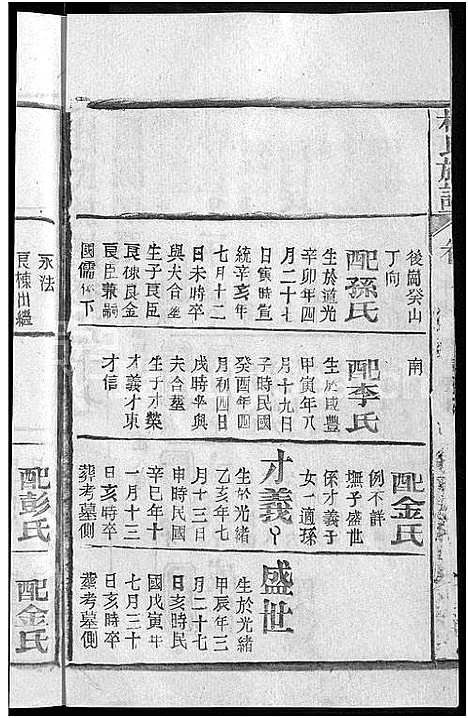 後崗癸山
丁向
配孫氏
生於道光
辛卯年四
月二十七
日寅時宣
統辛亥年
七月十二
日未時卒
與夫合塟
生子良臣
良棟良金
良臣兼嗣
國儒位下
永法
良棟出繼
南
配李氏
生於咸豐
甲寅年八
月十九日
子時民國
癸酉年四
月初四日
戌時卒與
夫合塟
生子才榮
才義才東
才信
配金氏
例不詳
撫子盛世
係才義子
女一適孫
才義
生於光緒
乙亥年七
月十三日
申時民國
辛巳年十
一月十三
日亥時卒
葬考墓側
配彭氏
盛世
生於光緒
甲辰年三
月二十七
日亥時民
國戊寅年
七月三十
日亥時卒
葬考墓側
配金氏